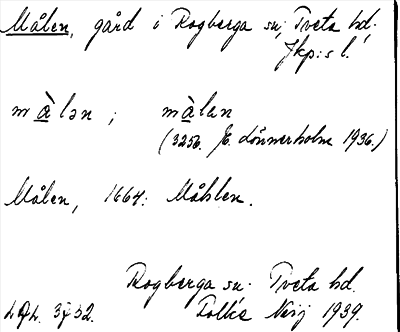 Målen, gård i Rogberga sn; Tveta hd.
Jkp:s l.
målən; målen
(3256. E. Lönnerholm 1936.)
Målen, 1664: Måhlen.
Rogberga sn. Tveta hd.
1939.